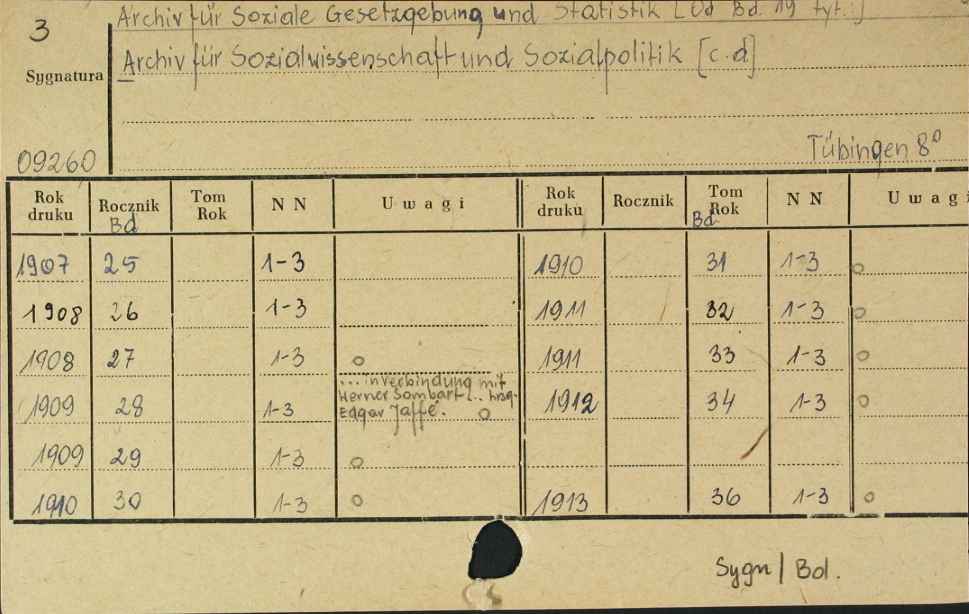 Archiv für Soziale Gesetzgebung und Statistik [Od Bd. 19 tyt.:]
3
Archiv für Sozialwissenschaft und Sozialpolitik [c.d]
Sygnatura
09260
Tübingen 8°
Rok druku Rocznik Bd Tom Rok N N Uwagi Rok druku Rocznik Tom Rok Bd. N N Uwagi
1907 25 1-3 1910 31 1-3 o
1908 26 1-3 1911 32 1-3 o
1908 27 1-3 o 1911 33 1-3 o
... in Verbindung mit
Werner Sombart ... hrsg.
1909 28 1-3 Edgar Jaffé. o 1912 34 1-3 o
1909 29 1-3 o
1910 30 1-3 o 1913 36 1-3 o
Sygn/Bd.